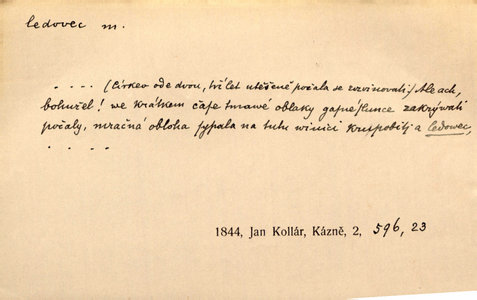 ledovec m.
. . . . (Církev ode dvou, tří let utěšeně počala se rozvinovati:) Ale ach,
bohužel! we krátkém čase tmawé oblaky gasné slunce zakrýwati
počaly, mračná obloha sypala na tuto winici krupobitj a ledowec,
. . . . .
1844, Jan Kollár, Kázně, 2, 596, 23